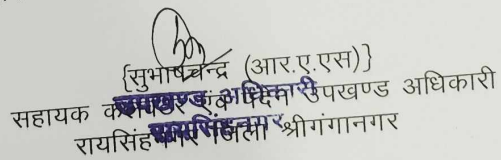 {सुभाषचन्द्र (आर.ए.एस)}
सहायक कलक्टर एवं पदेन उपखण्ड अधिकारी
उपखण्ड अधिकारी
रायसिंहनगर जिला श्रीगंगानगर
रायसिंहनगर